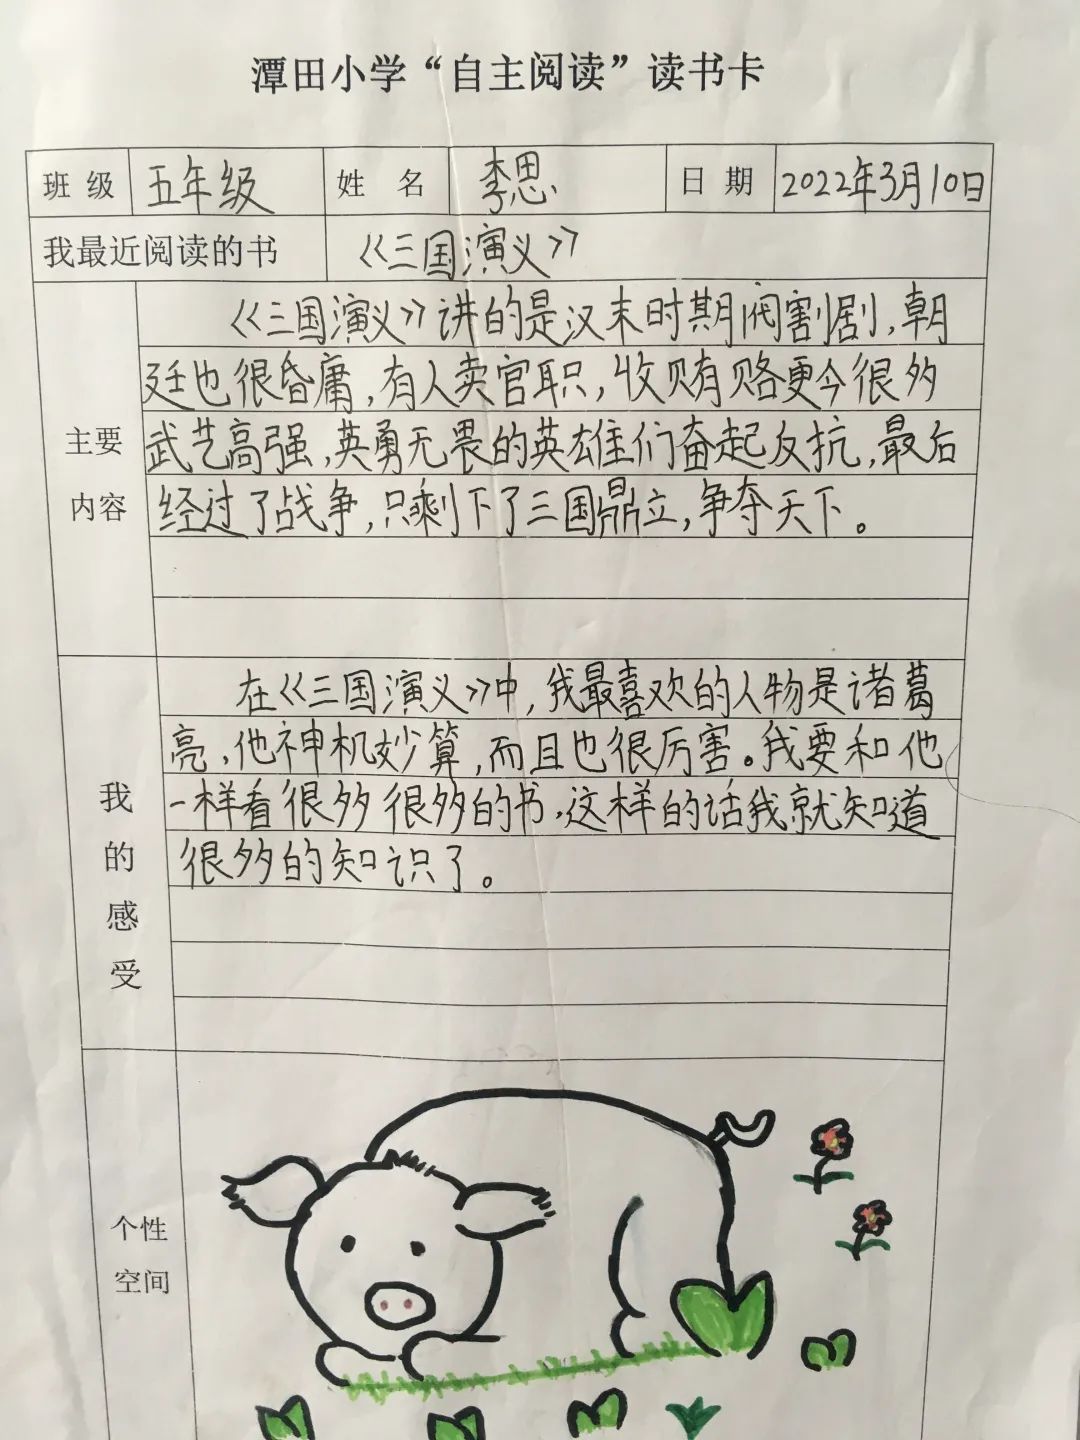 潭田小学“自主阅读”读书卡
班级 五年级 姓名 李思 日期 2022年3月10日
我最近阅读的书 《三国演义》
主要内容
《三国演义》讲的是汉末时期阀割剧,朝
廷也很昏庸,有人卖官职,收贿赂更今很多
武艺高强,英勇无畏的英雄们奋起反抗,最后
经过了战争,只剩下了三国鼎立,争夺天下。
我的感受
在《三国演义》中,我最喜欢的人物是诸葛
亮,他神机妙算,而且也很厉害。我要和他
一样看很多很多的书,这样的话我就知道
很多的知识了。
个性
空间